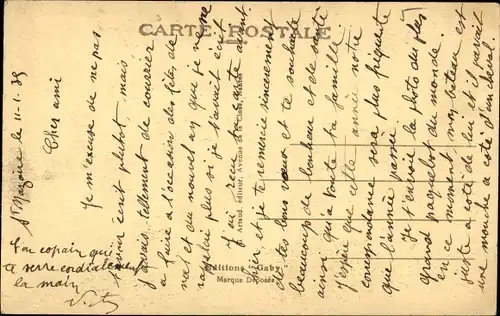 CARTE POSTALE
St Nazaire le 11-1-39
Cher ami
Je m'excuse de ne pas
t'avoir écrit plutot, mais
j'avais tellement de courrier
a faire a l'occasion des fêtes, de
noel et du nouvel an que je ne me
rappelai plus si je t'avait écrit
J'ai reçu ta carte avant
hier et je te remercie sincèrement
de tes bons vœux et te souhaite
beaucoup de bonheur et de santé
ainsi qu'a toute ta famille
J'espère que cette année notre
correspondance sera plus fréquente
que l'année passée.
Je t'envoie la photo du plus
grand paquebot du monde.
en ce moment, mon bateau est
juste a coté de lui et il parait
une mouche a coté d'un cheval
Ton copain qui
te serre cordialement
la main
Arnaud, éditeur, Avenue de la Close, Nantes
Editions Gaby
Marque Déposée